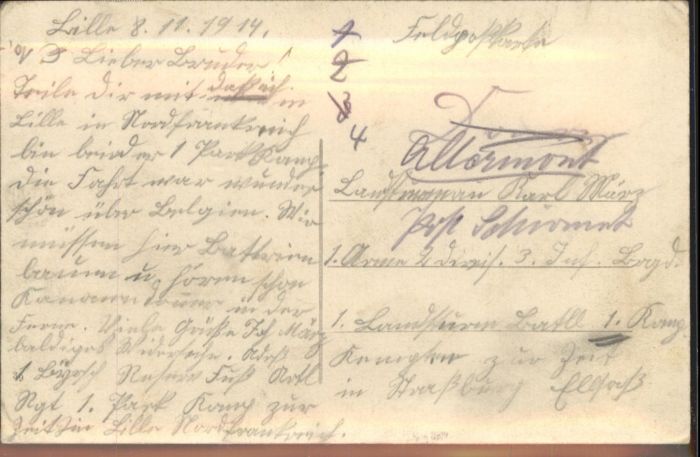 Lille 8.11.1914.
Lieber Bruder!
Teile dir mit dass ich in
Lille in Nordfrankreich
bin bei der 1 Park Komp.
die Fahrt war wunder
schön über Belgien. Wir
müssen hier Batterien
bauen u. hören schon
Kanonendonner in der
Ferne. Viele Grüße Joh März
baldiges Wiedersehn. Adreß
1 Bayrsch Reserv Fuß Artl
Rgt 1. Park Komp zur
Zeit in Lille Nordfrankreich.
1
2
3
4
Feldpostkarte
Allarmont
Landsturmman Karl März
Post Schirmek
1. Arme 2 divis. 3. Inf. Bagd.
1. Landsturm Batll 1. Komp.
Kempten zur Zeit
in Straßburg Elsaß